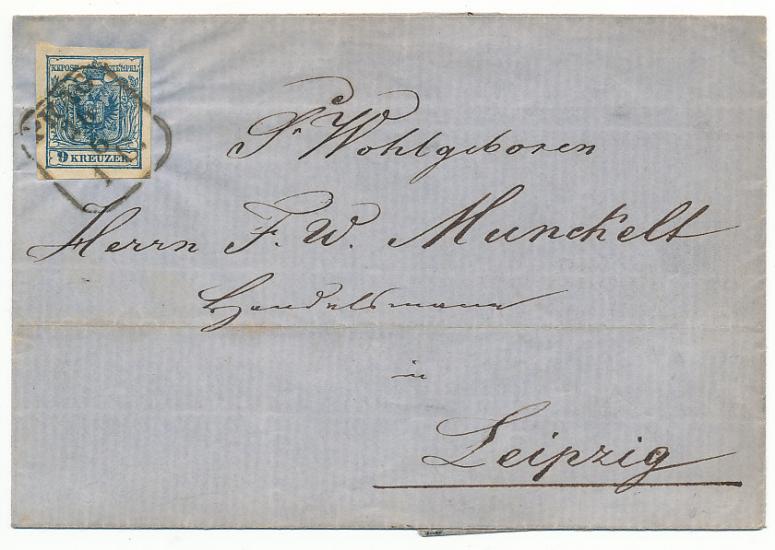 KKPOST-STEMPEL
9 KREUZER
Sr Wohlgeboren
Herrn F. W. Munckelt
Handelsmann
in
Leipzig